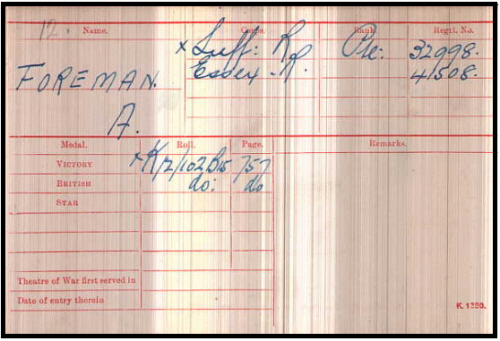 12. Name. Corps. Rank. Regtl. No.
x Suff: R. Pte: 32998.
FOREMAN. Essex R. 41508.
A.
Medal. Roll. Page. Remarks.
VICTORY x K/2/102B15 757
BRITISH do: do
STAR
Theatre of War first served in
Date of entry therein
K. 1380.